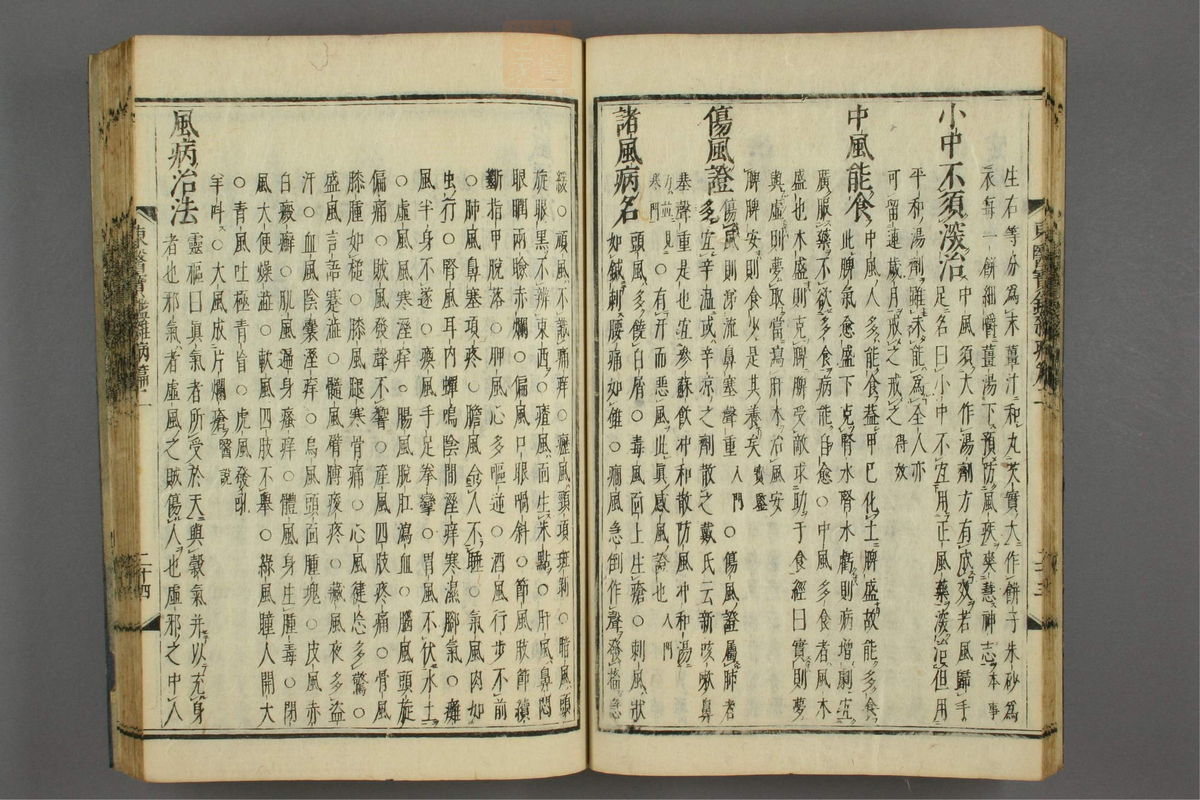 生右等分爲末薑汁和丸芡實大作餠子朱砂爲
衣每一餠細嚼薑湯下預防風疾爽慧神志本事
小中不須深治
中風須大作湯劑方有成效者風歸手
足名曰小中不宜用正風藥深治但用
平和湯劑雖未能爲全人亦
可留連歲月戒之戒之得效
中風能食
中風人多能食蓋甲己化土脾盛故能多食
此脾氣愈盛下克腎水腎水虧則病增劇宜
廣服藥不欲多食病能自愈○中風多食者風木
盛也木盛則克脾脾受敵求助于食經曰實則夢
與虛則夢取當瀉肝木治風安
脾脾安則食少是其養矣寶鑑
傷風證
傷風則涕流鼻塞聲重入門○傷風證屬肺者
多宜辛溫或辛涼之劑散之戴氏云新咳嗽鼻
塞聲重是也宜參蘇飮冲和散防風冲和湯
方並見寒門○有汗而惡風此眞感風證也入門
諸風病名
頭風多饒白屑○毒風面上生瘡○刺風狀
如鍼刺腰痛如錐○癎風急倒作聲發搐急
緩○頑風不識痛痒○癧風頸項斑剝○暗風頭
旋眼黑不辨東西○㾴風面生赤點○肝風鼻悶
眼瞤兩瞼赤爛○偏風口眼喎斜○節風肢節續
斷指甲脫落○脾風心多嘔逆○酒風行步不前
○肺風鼻塞項疼○膽風令人不睡○氣風肉如
虫行○腎風耳內蟬鳴陰間溼痒寒濕脚氣○癱
風半身不遂○瘓風手足拳攣○胃風不伏水土
○虛風風寒溼痒○腸風脫肛瀉血○腦風頭旋
偏痛○賊風發聲不響○產風四肢疼痛○骨風
膝腫如槌○膝風腿寒骨痛○心風健忘多驚○
盛風言語蹇澁○髓風臂膊痠疼○藏風夜多盜
汗○血風陰囊溼痒○烏風頭面腫塊○皮風赤
白癜癬○肌風遍身瘙痒○體風身生腫毒○閉
風大便燥澁○軟風四肢不擧○綠風瞳人開大
○靑風吐極靑盲○虎風發吼
羊叫○大風成片爛瘡醫說
風病治法
靈樞曰眞氣者所受於天與穀氣并以充身
者也邪氣者虛風之賊傷人也虛邪之中人